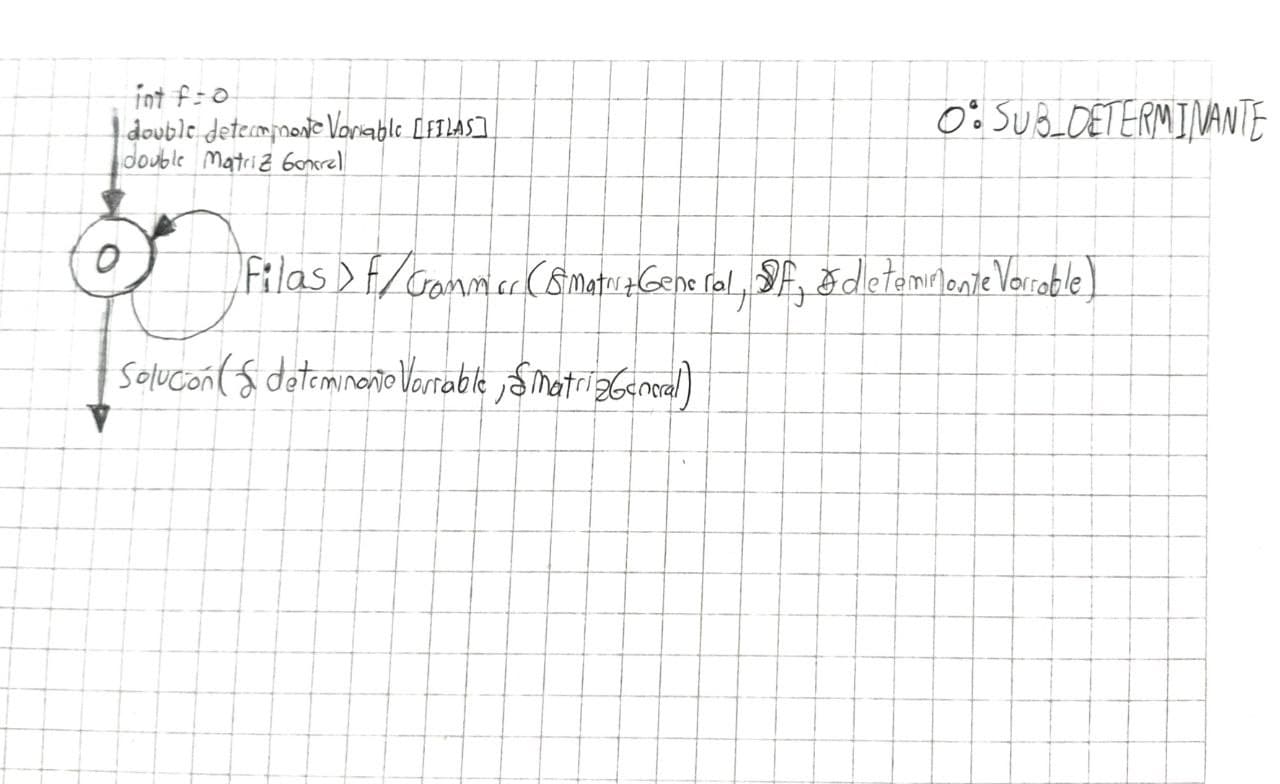 int f=0
0: SUB_DETERMINANTE
double determinanteVariable [FILAS]
double Matriz General
0
Filas > f / Crammer (&MatrizGeneral, &f, &determinanteVariable)
Solución (& determinanteVariable, &MatrizGeneral)